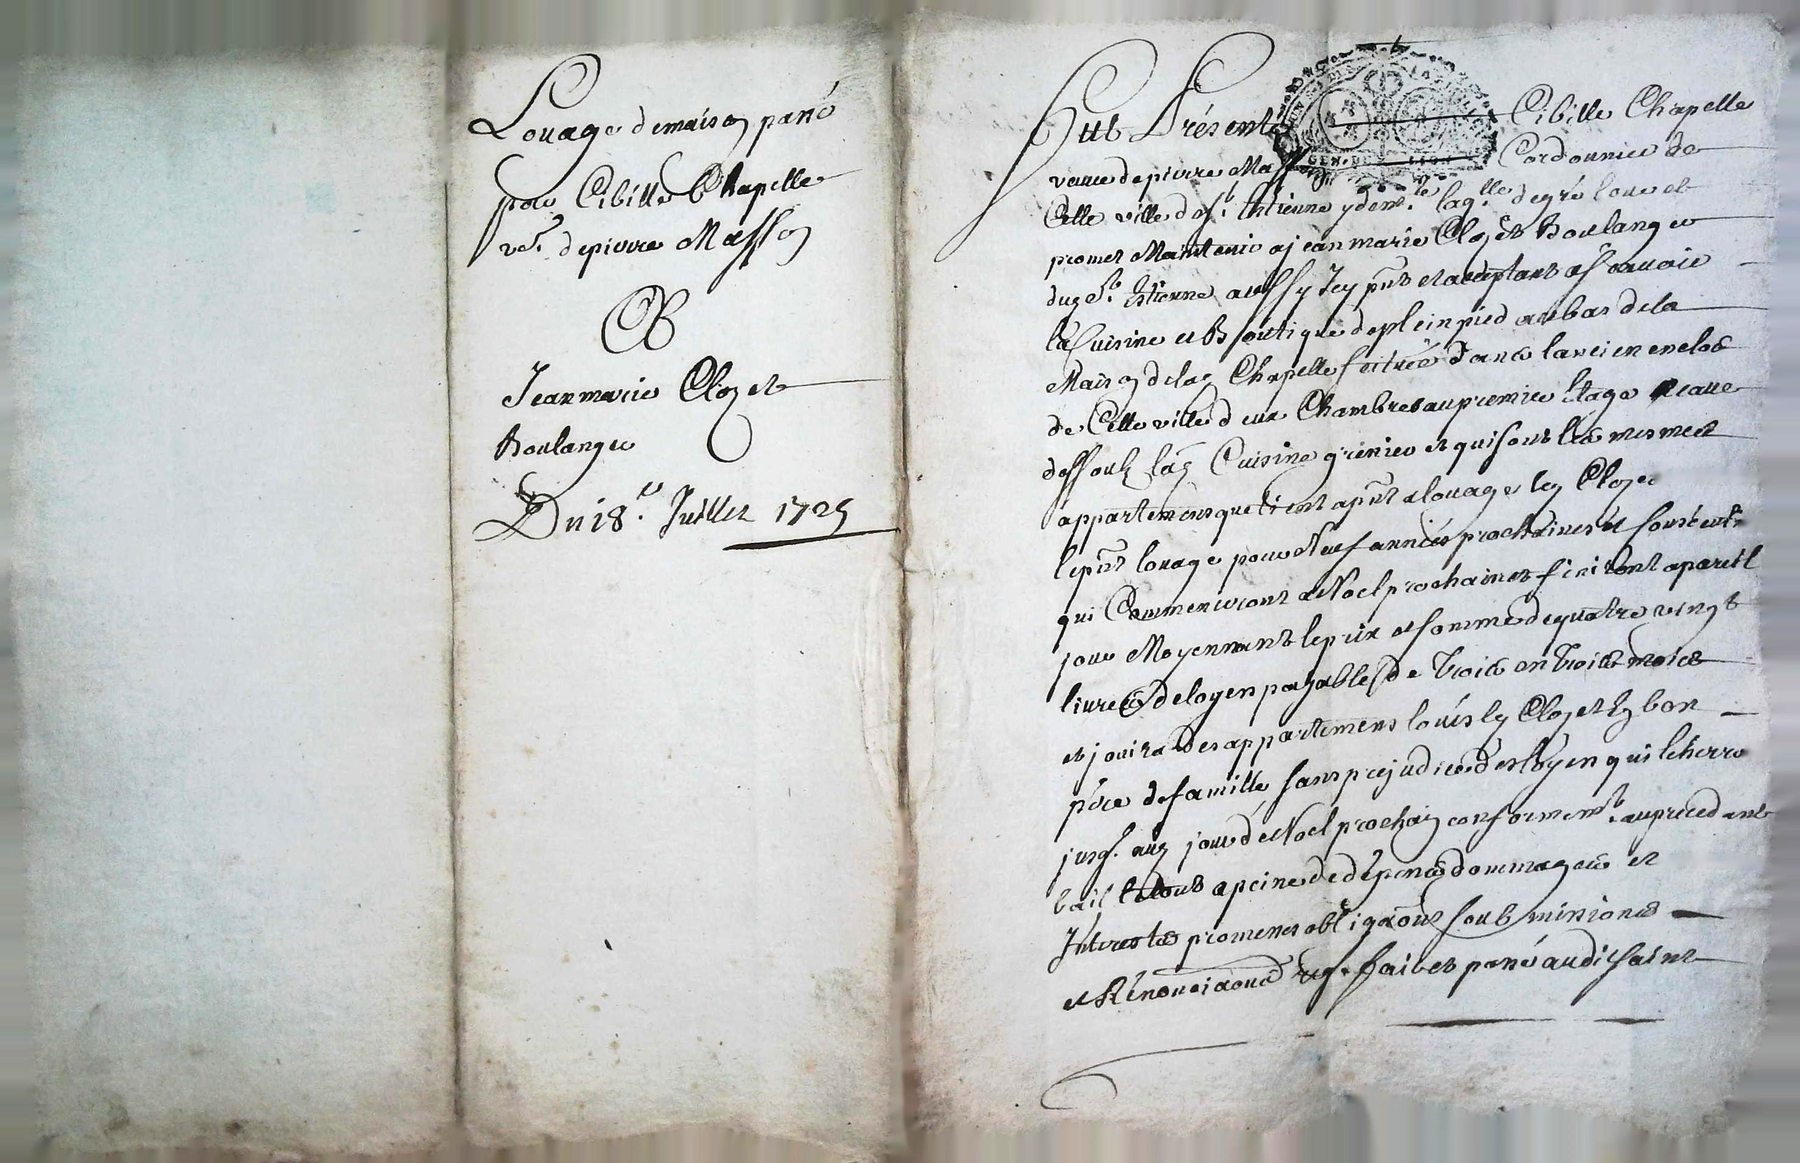 Louage de maison passé
par Cibille Chapelle
vve. de pierre Masson
A
Jean marie Clozet
Boulanger
Du 18.e Juillet 1725
Fut Présente Cibille Chapelle
veuve de pierre Masson Cordonnier de
Cette ville de St. Estienne y demt. laq.lle de gré loue et
promet Maintenir a jean marie Clozet Boulanger
dud St. Estienne aussy Icy pnt et acceptant assavoir
la Cuisine et Boutique de plein pied au bas de la
Maison de lad Chapelle scituée dans lancien enclos
de Cette ville deux Chambres au premier Etage cave
dessoub lad Cuisine grenier et qui sont les mesmes
appartemens que tient apnt a louage led Clozet
le pnt louage pour Neuf années prochaines et
qui Commenceront a Noel prochain et finiront a pareil
jour Moyennant le prix et somme de quatre vingt
livres de loyer payables de trois en trois mois
et jouira des appartemens loués led Clozet En bon
pére de famille sans prejudice des loyers qui
jusq. aud jour de Noel prochain conformemt. au précédent
bail le tout a peine de dépens dommages et
Interests promesses obligãons soubmissions
et Rénonciãons req. fait et passé audit saint